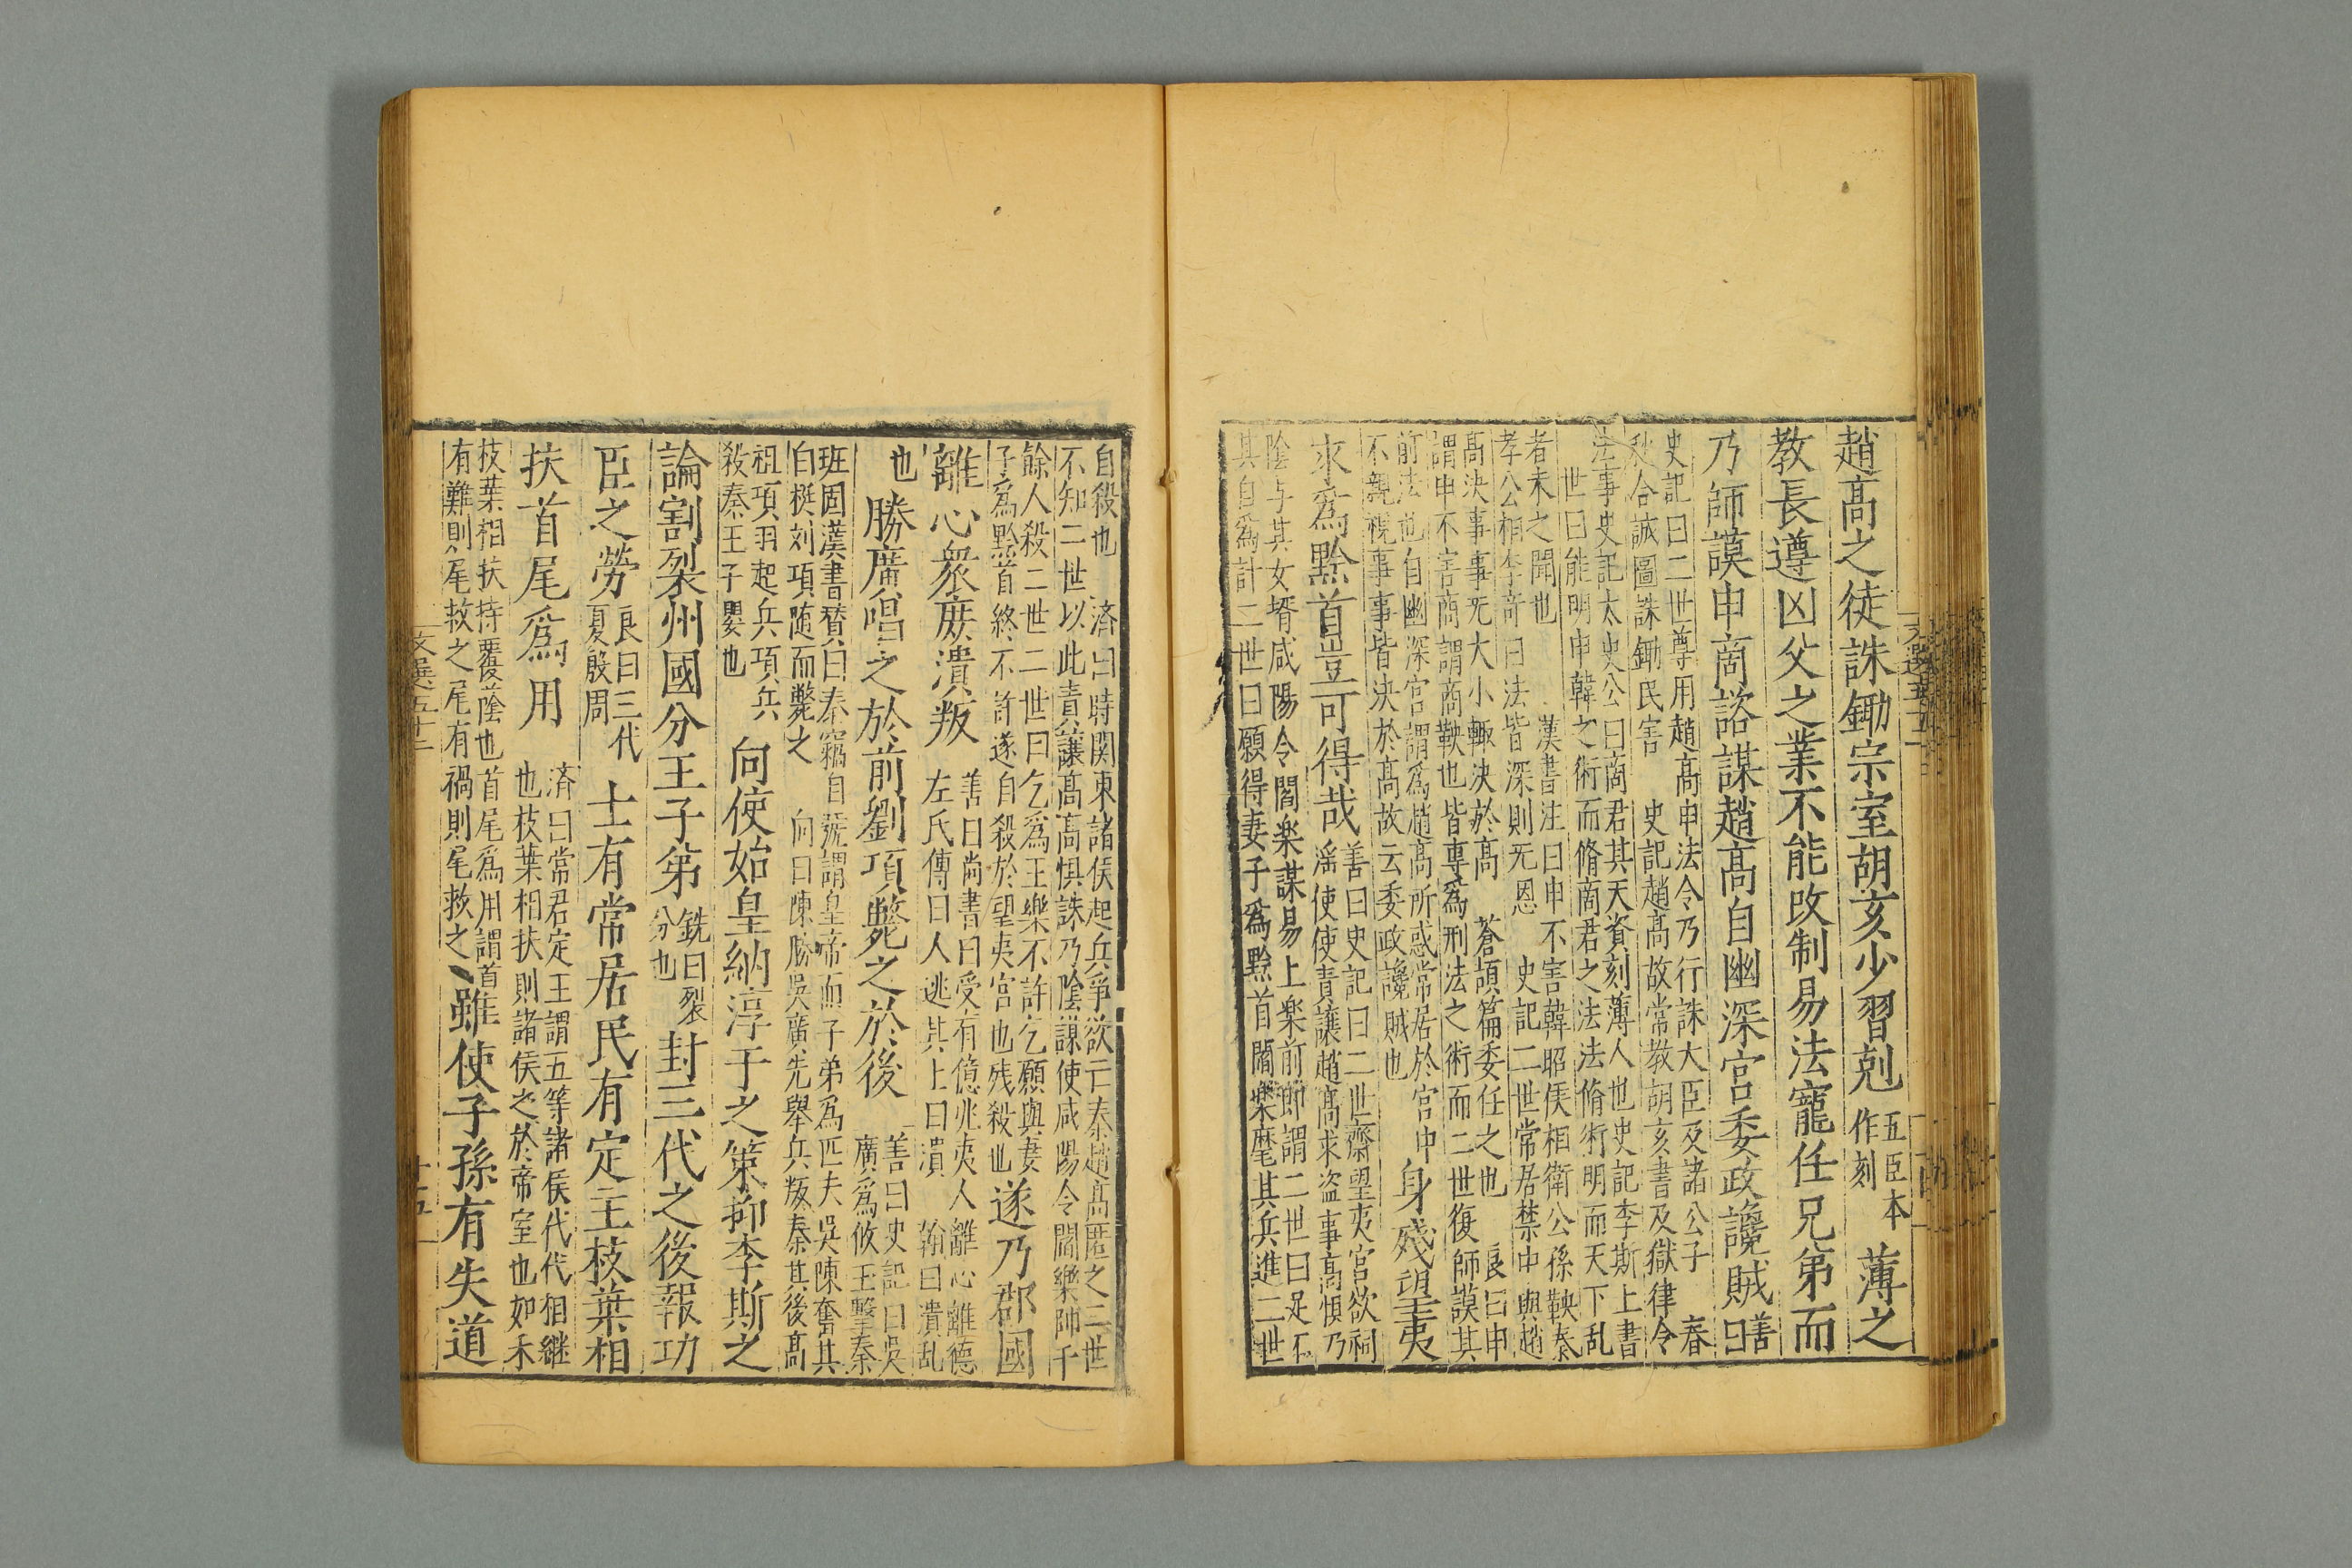 趙高之徒誅鋤宗室胡亥少習剋五臣本作刻薄之
教長遵凶父之業不能改制易法寵任兄弟而
乃師謨申商諮謀趙高自幽深宮委政讒賊善曰
史記曰二世尊用趙高申法令乃行誅大臣及諸公子 春
秋合誠圖誅鋤民害 史記趙高故常教胡亥書及獄律令
法事史記太史公曰商君其天資刻薄人也史記李斯上書
世曰能明申韓之術而脩商君之法法脩術明而天下乱
者未之聞也 漢書注曰申不害韓昭侯相衛公孫鞅秦
孝公相李奇曰法皆深則无恩 史記二世常居禁中與趙
高決事事无大小輒決於高 蒼頡篇委任之也 良曰申
謂申不害商謂商鞅也皆專爲刑法之術而二世復師謨其
前法也自幽深宮謂爲趙高所惑常居於宮中
不親視事事皆決於高故云委政讒賊也
身殘望夷
求爲黔首豈可得哉善曰史記曰二世齋望夷宮欲祠
滛使使責讓趙高求盜事高懼乃
陰与其女壻咸陽令閻楽謀易上楽前即謂二世曰足不
其自爲計二世曰願得妻子爲黔首閻樂麾其兵進二世
自殺也 済曰時関東諸侯起兵爭欲亡秦趙高匿之二世
不知二世以此責讓高高惧誅乃陰謀使咸陽令閻樂帥千
餘人殺二世二世曰乞爲王樂不許乞願與妻
子爲黔首終不許遂自殺於望夷宮也残殺也
遂乃郡國
離心衆庶潰叛善曰尚書曰受有億兆夷人離心離德
左氏傳曰人逃其上曰潰 翰曰潰乱
也勝廣唱之於前劉項斃之於後善曰史記曰吳
廣爲攸王擊秦
班固漢書賛曰秦竊自號謂皇帝而子弟爲匹夫吳陳奮其
白梃刘項随而斃之 向曰陳勝吳廣先舉兵叛秦其後高
祖項羽起兵項兵
殺秦王子嬰也
向使始皇納淳于之策抑李斯之
論割裂州國分王子弟銑曰裂分也封三代之後報功
臣之勞良曰三代夏殷周士有常居民有定主枝葉相
扶首尾爲用済曰常君定王謂五等諸侯代代相継
也枝葉相扶則諸侯之於帝室也如木
枝葉相扶持覆蔭也首尾爲用謂首
有難則尾救之尾有禍則尾救之
雖使子孫有失道
文選五十二
廿五